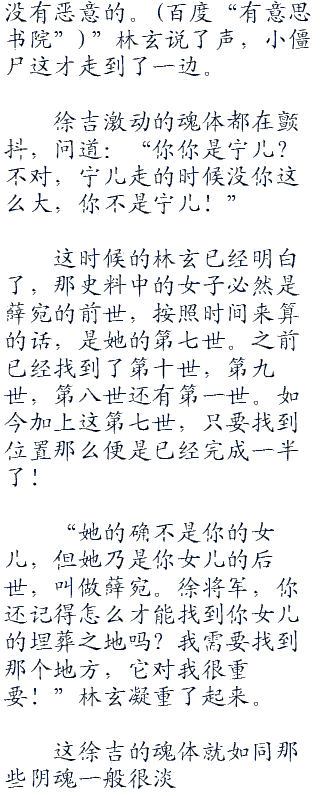 没有恶意的。(百度“有意思
书院”)”林玄说了声，小僵
尸这才走到了一边。
徐吉激动的魂体都在颤
抖，问道：“你你是宁儿？
不对，宁儿走的时候没你这
么大，你不是宁儿！”
这时候的林玄已经明白
了，那史料中的女子必然是
薛宛的前世，按照时间来算
的话，是她的第七世。之前
已经找到了第十世，第九
世，第八世还有第一世。如
今加上这第七世，只要找到
位置那么便是已经完成一半
了！
“她的确不是你的女
儿，但她乃是你女儿的后
世，叫做薛宛。徐将军，你
还记得怎么才能找到你女儿
的埋葬之地吗？我需要找到
那个地方，它对我很重
要！”林玄凝重了起来。
这徐吉的魂体就如同那
些阴魂一般很淡